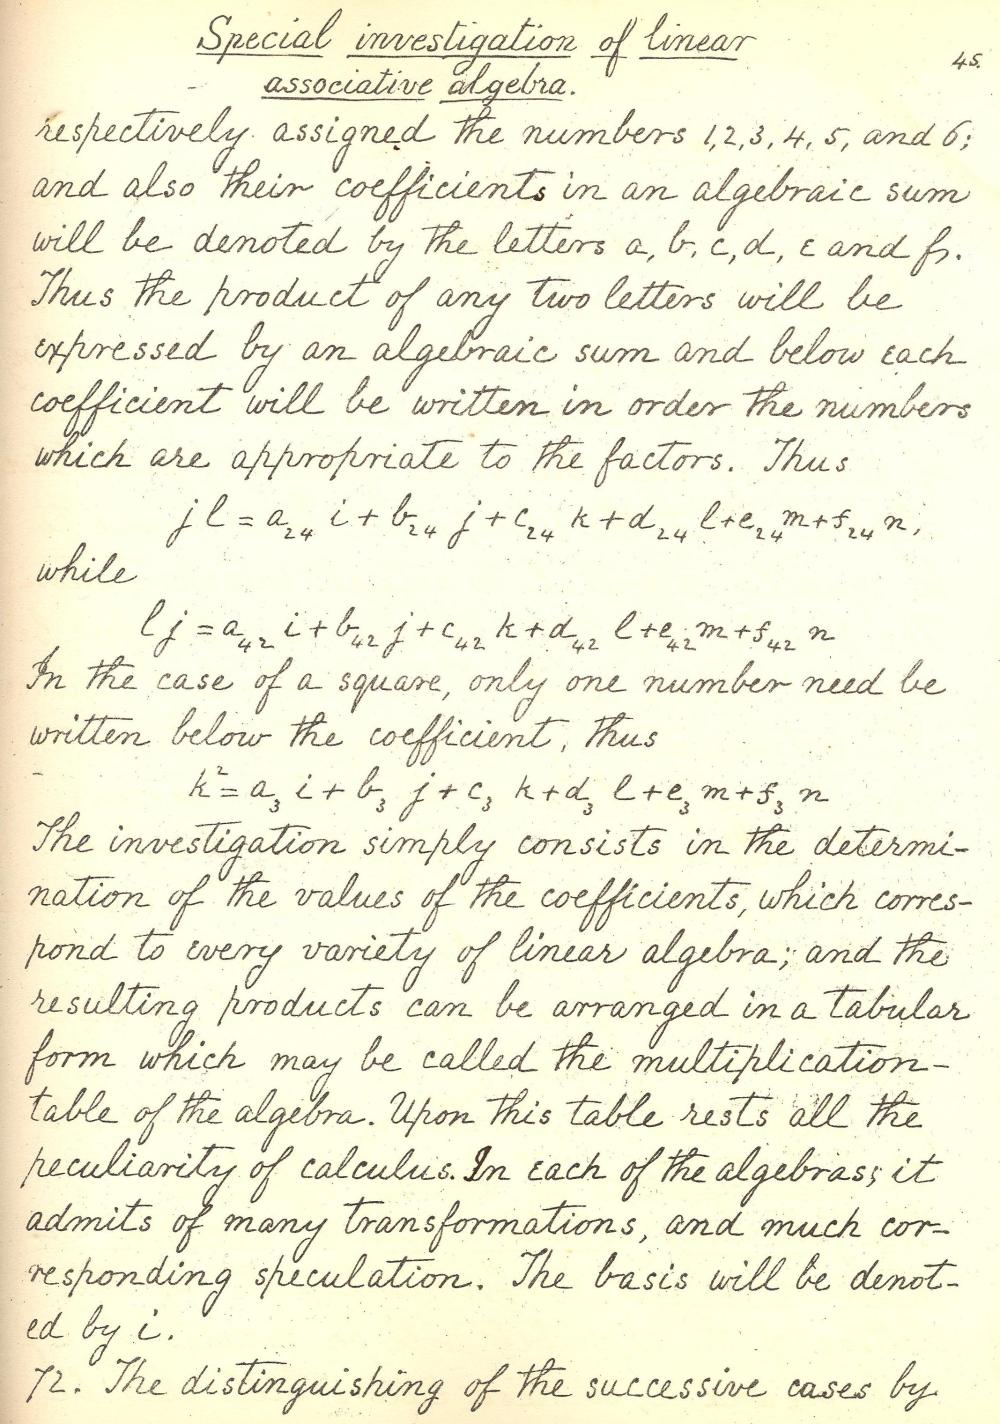 Special investigation of linear
45.
associative algebra.
respectively assigned the numbers 1, 2, 3, 4, 5, and 6;
and also their coefficients in an algebraic sum
will be denoted by the letters a, b, c, d, e and f.
Thus the product of any two letters will be
expressed by an algebraic sum and below each
coefficient will be written in order the numbers
which are appropriate to the factors. Thus
jl = a₂₄ i + b₂₄ j + c₂₄ k + d₂₄ l + e₂₄ m + f₂₄ n,
while
lj = a₄₂ i + b₄₂ j + c₄₂ k + d₄₂ l + e₄₂ m + f₄₂ n
In the case of a square, only one number need be
written below the coefficient, thus
k² = a₃ i + b₃ j + c₃ k + d₃ l + e₃ m + f₃ n
The investigation simply consists in the determi-
nation of the values of the coefficients, which corres-
pond to every variety of linear algebra; and the
resulting products can be arranged in a tabular
form which may be called the multiplication-
table of the algebra. Upon this table rests all the
peculiarity of calculus. In each of the algebras; it
admits of many transformations, and much cor-
responding speculation. The basis will be denot-
ed by i.
72. The distinguishing of the successive cases by